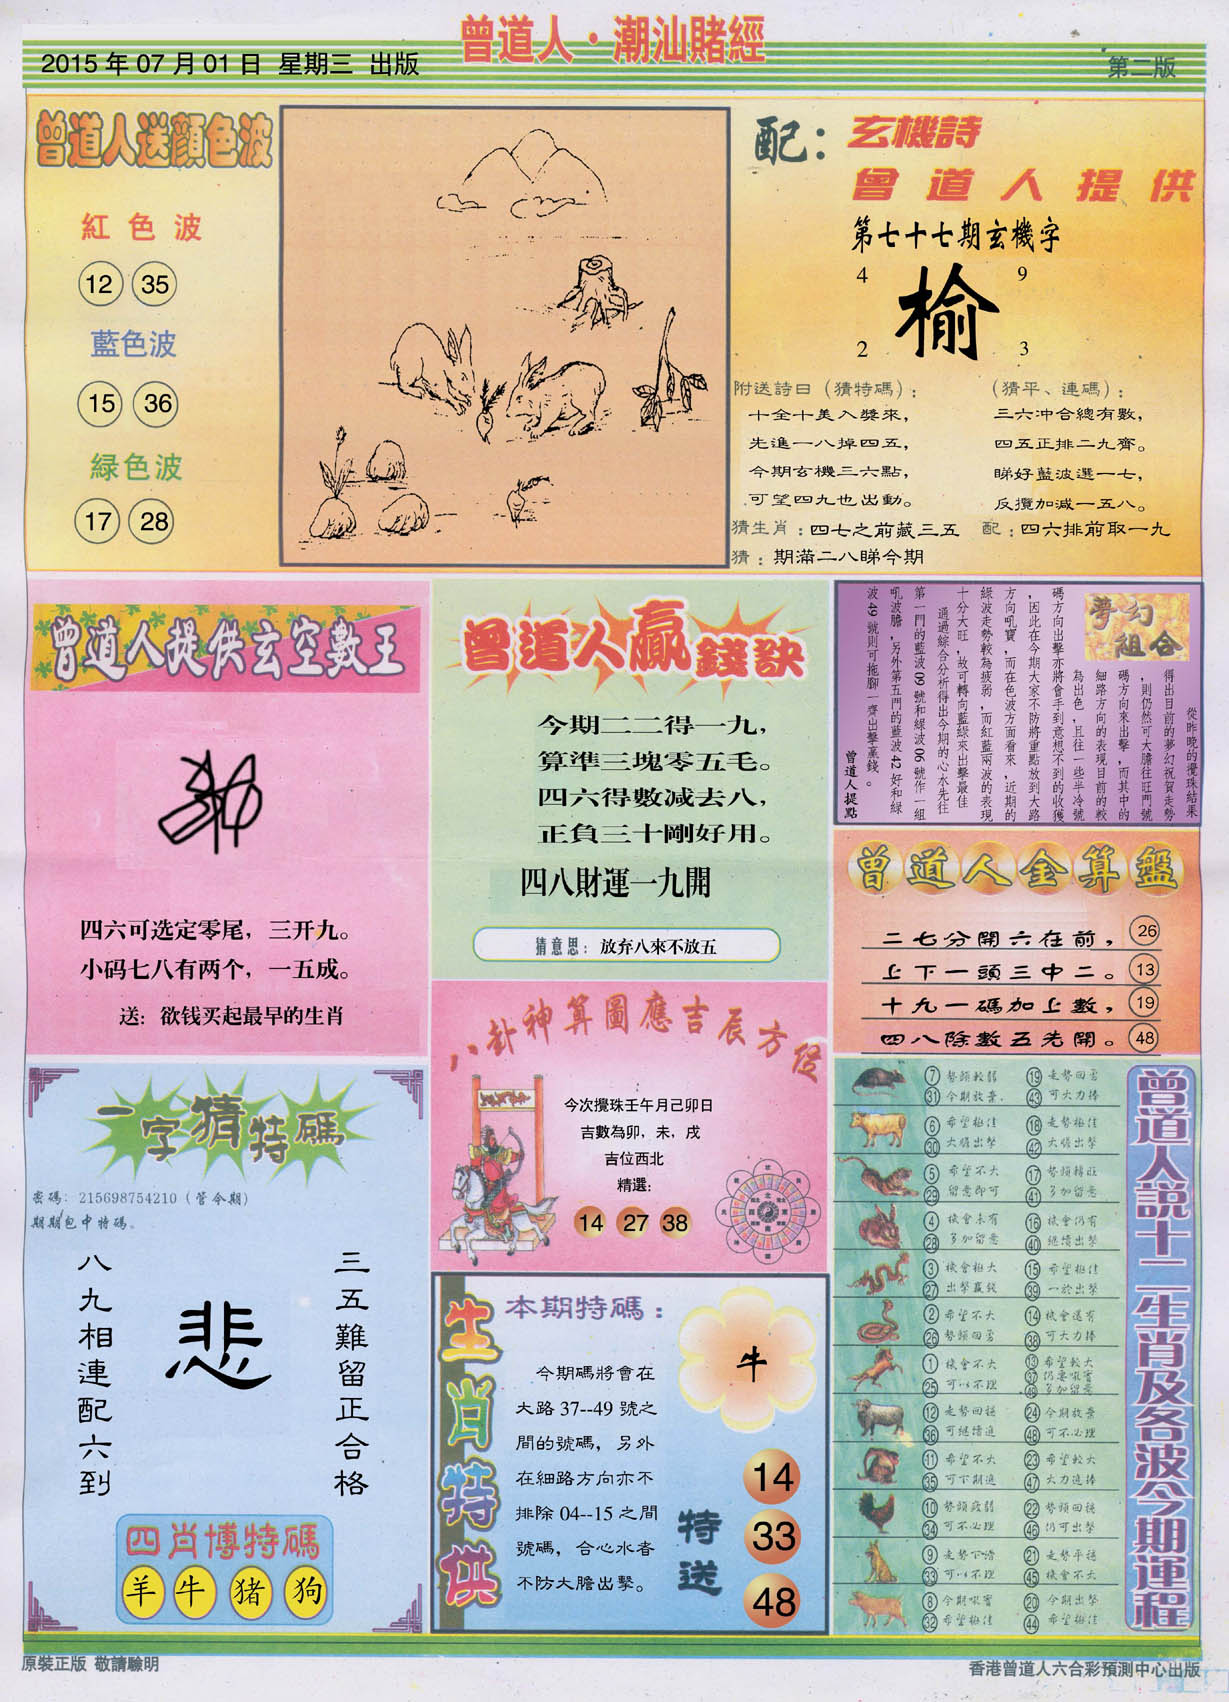 曾道人·潮汕賭經
2015 年 07 月 01 日 星期三 出版
第二版
曾道人送顏色波
紅色波
12 35
藍色波
15 36
緑色波
17 28
配：
玄機詩
曾道人提供
第七十七期玄機字
4 9
榆
2 3
附送詩曰（猜特碼）：
十全十美入獎來，
先進一八掉四五，
今期玄機三六點，
可望四九也出動。
（猜平、連碼）：
三六冲合總有數，
四五正排二九齊。
睇好藍波選一七，
反攬加減一五八。
猜生肖：四七之前藏三五
配：四六排前取一九
猜：期滿二八睇今期
曾道人提供玄空數王
四六可选定零尾，三开九。
小码七八有两个，一五成。
送：欲钱买起最早的生肖
曾道人贏錢訣
今期二二得一九，
算準三塊零五毛。
四六得數减去八，
正負三十剛好用。
四八財運一九開
猜意思：放弃八來不放五
夢幻組合
從昨晚的攪珠結果
得出目前的夢幻祝賀走勢
，則仍然可大膽往旺門號
碼方向來出擊，而其中的
細路方向的表現目前的較
為出色，且往一些半冷號
碼方向出擊亦將會手到意想不到的收獲
，因此在今期大家不防將重點放到大路
方向吼寶，而在色波方面看來，近期的
綠波走勢較為疲弱，而紅藍兩波的表現
十分大旺，故可轉向藍綠來出擊最佳
通過綜合分析得出今期的心水先往
第一門的藍波09號和緑波06號作一組
吼波膽，另外第五門的藍波42好和緑
波49號則可拖腳一齊出擊贏錢。
曾道人提點
曾道人金算盤
二七分開六在前， 26
上下一頭三中二。 13
十九一碼加上數， 19
四八除數五先開。 48
八卦神算圖應吉辰方位
今次攪珠壬午月己卯日
吉數為卯，未，戌
吉位西北
精選：
14 27 38
一字猜特碼
密碼：215698754210（管今期）
期期包中特碼。
三五難留正合格
悲
八九相連配六到
四肖博特碼
羊 牛 猪 狗
生肖特供
本期特碼：
今期碼將會在
大路 37--49 號之
間的號碼，另外
在細路方向亦不
排除 04--15 之間
號碼，合心水者
不防大膽出擊。
牛
特送
14
33
48
曾道人説十二生肖及各波今期運程
7 勢頭較弱 19 走勢回勇
31 今期放棄 43 可大力捧
6 希望極佳 18 走勢極佳
30 大膽出擊 42 大膽出擊
5 希望不大 17 勢頭轉旺
29 留意即可 41 多加留意
4 機會未有 16 機會仍有
28 多加留意 40 繼續出擊
3 機會極大 15 希望極佳
27 出擊贏錢 39 一於出擊
2 希望不大 14 機會還有
26 勢頭回勇 38 可大力捧
1 機會不大 13 希望較大
25 可以不理 37 仍要吼實
49 多加留意
12 走勢回穩 24 今期放棄
36 可繼續追 48 可不必理
11 希望不大 23 希望較大
35 可下期追 47 大力追捧
10 勢頭疲弱 22 勢頭回穩
34 可不必理 46 仍可出擊
9 走勢下滑 21 走勢平穩
33 可以不理 45 機會不大
8 今期吼實 20 今期出擊
32 希望極佳 44 希望極佳
原裝正版 敬請驗明
香港曾道人六合彩預測中心出版